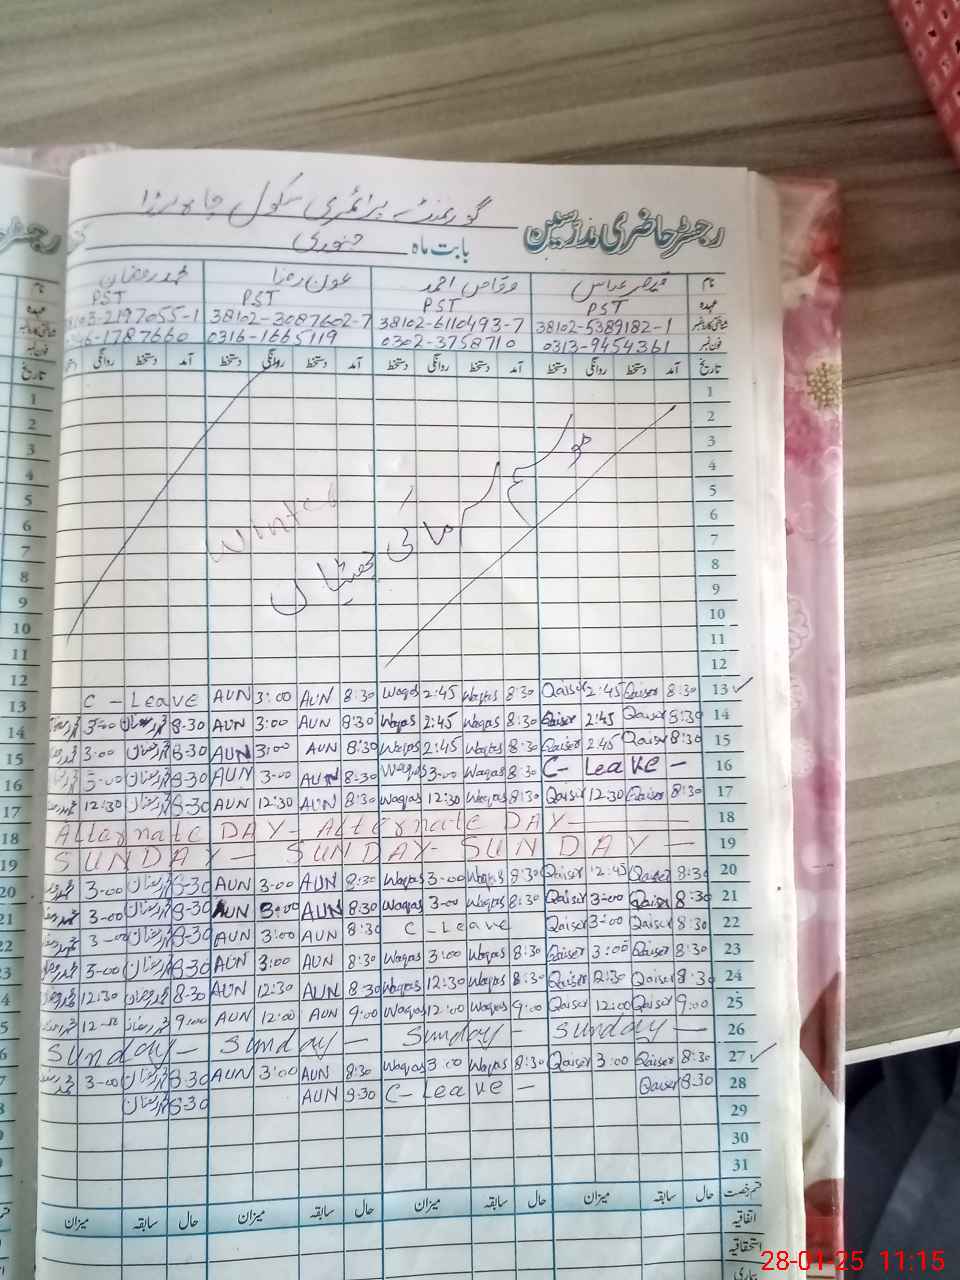 رجسٹر حاضری مدرسین گورنمنٹ پرائمری سکول چاہ
بابت ماہ جنوری
نام قیصر عباس وقاص احمد عون رضا محمد رمضان
عہدہ PST PST PST PST
شناختی کارڈ نمبر 38102-5389182-1 38102-6110493-7 38102-3087602-7 03-2197055-1
فون نمبر 0313-9454361 0302-3758710 0316-1665119 46-1787660
تاریخ آمد دستخط روانگی دستخط آمد دستخط روانگی دستخط آمد دستخط روانگی دستخط آمد دستخط روانگی
1
2
3
4
5
6
7
8
9
10
11
12
موسم سرما کی چھٹیاں
Winter
C - Leave AUN 3:00 AUN 8:30 Waqas 2:45 Waqas 8:30 Qaiser 2:45 Qaiser 8:30 13
3:00 8-30 AUN 3:00 AUN 8:30 Waqas 2:45 Waqas 8:30 Qaiser 2:45 Qaiser 8:30 14
3:00 8-30 AUN 3:00 AUN 8:30 Waqas 2:45 Waqas 8:30 Qaiser 2:45 Qaiser 8:30 15
3-00 8-30 AUN 3-00 AUN 8-30 Waqas 3-00 Waqas 8:30 C- Leave - 16
12:30 8-30 AUN 12:30 AUN 8:30 Waqas 12:30 Waqas 8:30 Qaiser 12:30 Qaiser 8:30 17
Alternate DAY- Alternate DAY- 18
SUNDAY - SUNDAY- SUNDAY - 19
3-00 8-30 AUN 3-00 AUN 8:30 Waqas 3-00 Waqas 8:30 Qaiser 2:45 Qaiser 8:30 20
3-00 8-30 AUN 3:00 AUN 8:30 Waqas 3-00 Waqas 8:30 Qaiser 3-00 Qaiser 8:30 21
3-00 8-30 AUN 3:00 AUN 8:30 C - Leave Qaiser 3-00 Qaiser 8:30 22
3-00 8-30 AUN 3:00 AUN 8:30 Waqas 3:00 Waqas 8:30 Qaiser 3:00 Qaiser 8:30 23
12:30 8-30 AUN 12:30 AUN 8-30 Waqas 12:30 Waqas 8:30 Qaiser 2:30 Qaiser 8:30 24
12-00 9:00 AUN 12:00 AUN 9:00 Waqas 12:00 Waqas 9:00 Qaiser 12:00 Qaiser 9:00 25
Sunday - Sunday - Sunday - Sunday - 26
3-00 8-30 AUN 3:00 AUN 8:30 Waqas 3:00 Waqas 8:30 Qaiser 3:00 Qaiser 8:30 27
8-30 AUN 8:30 C- Leave - Qaiser 8:30 28
29
30
31
قسم رخصت حال سابقہ میزان حال سابقہ میزان حال سابقہ میزان حال سابقہ میزان
اتفاقیہ
استحقاقیہ
بیماری
28-01-25 11:15